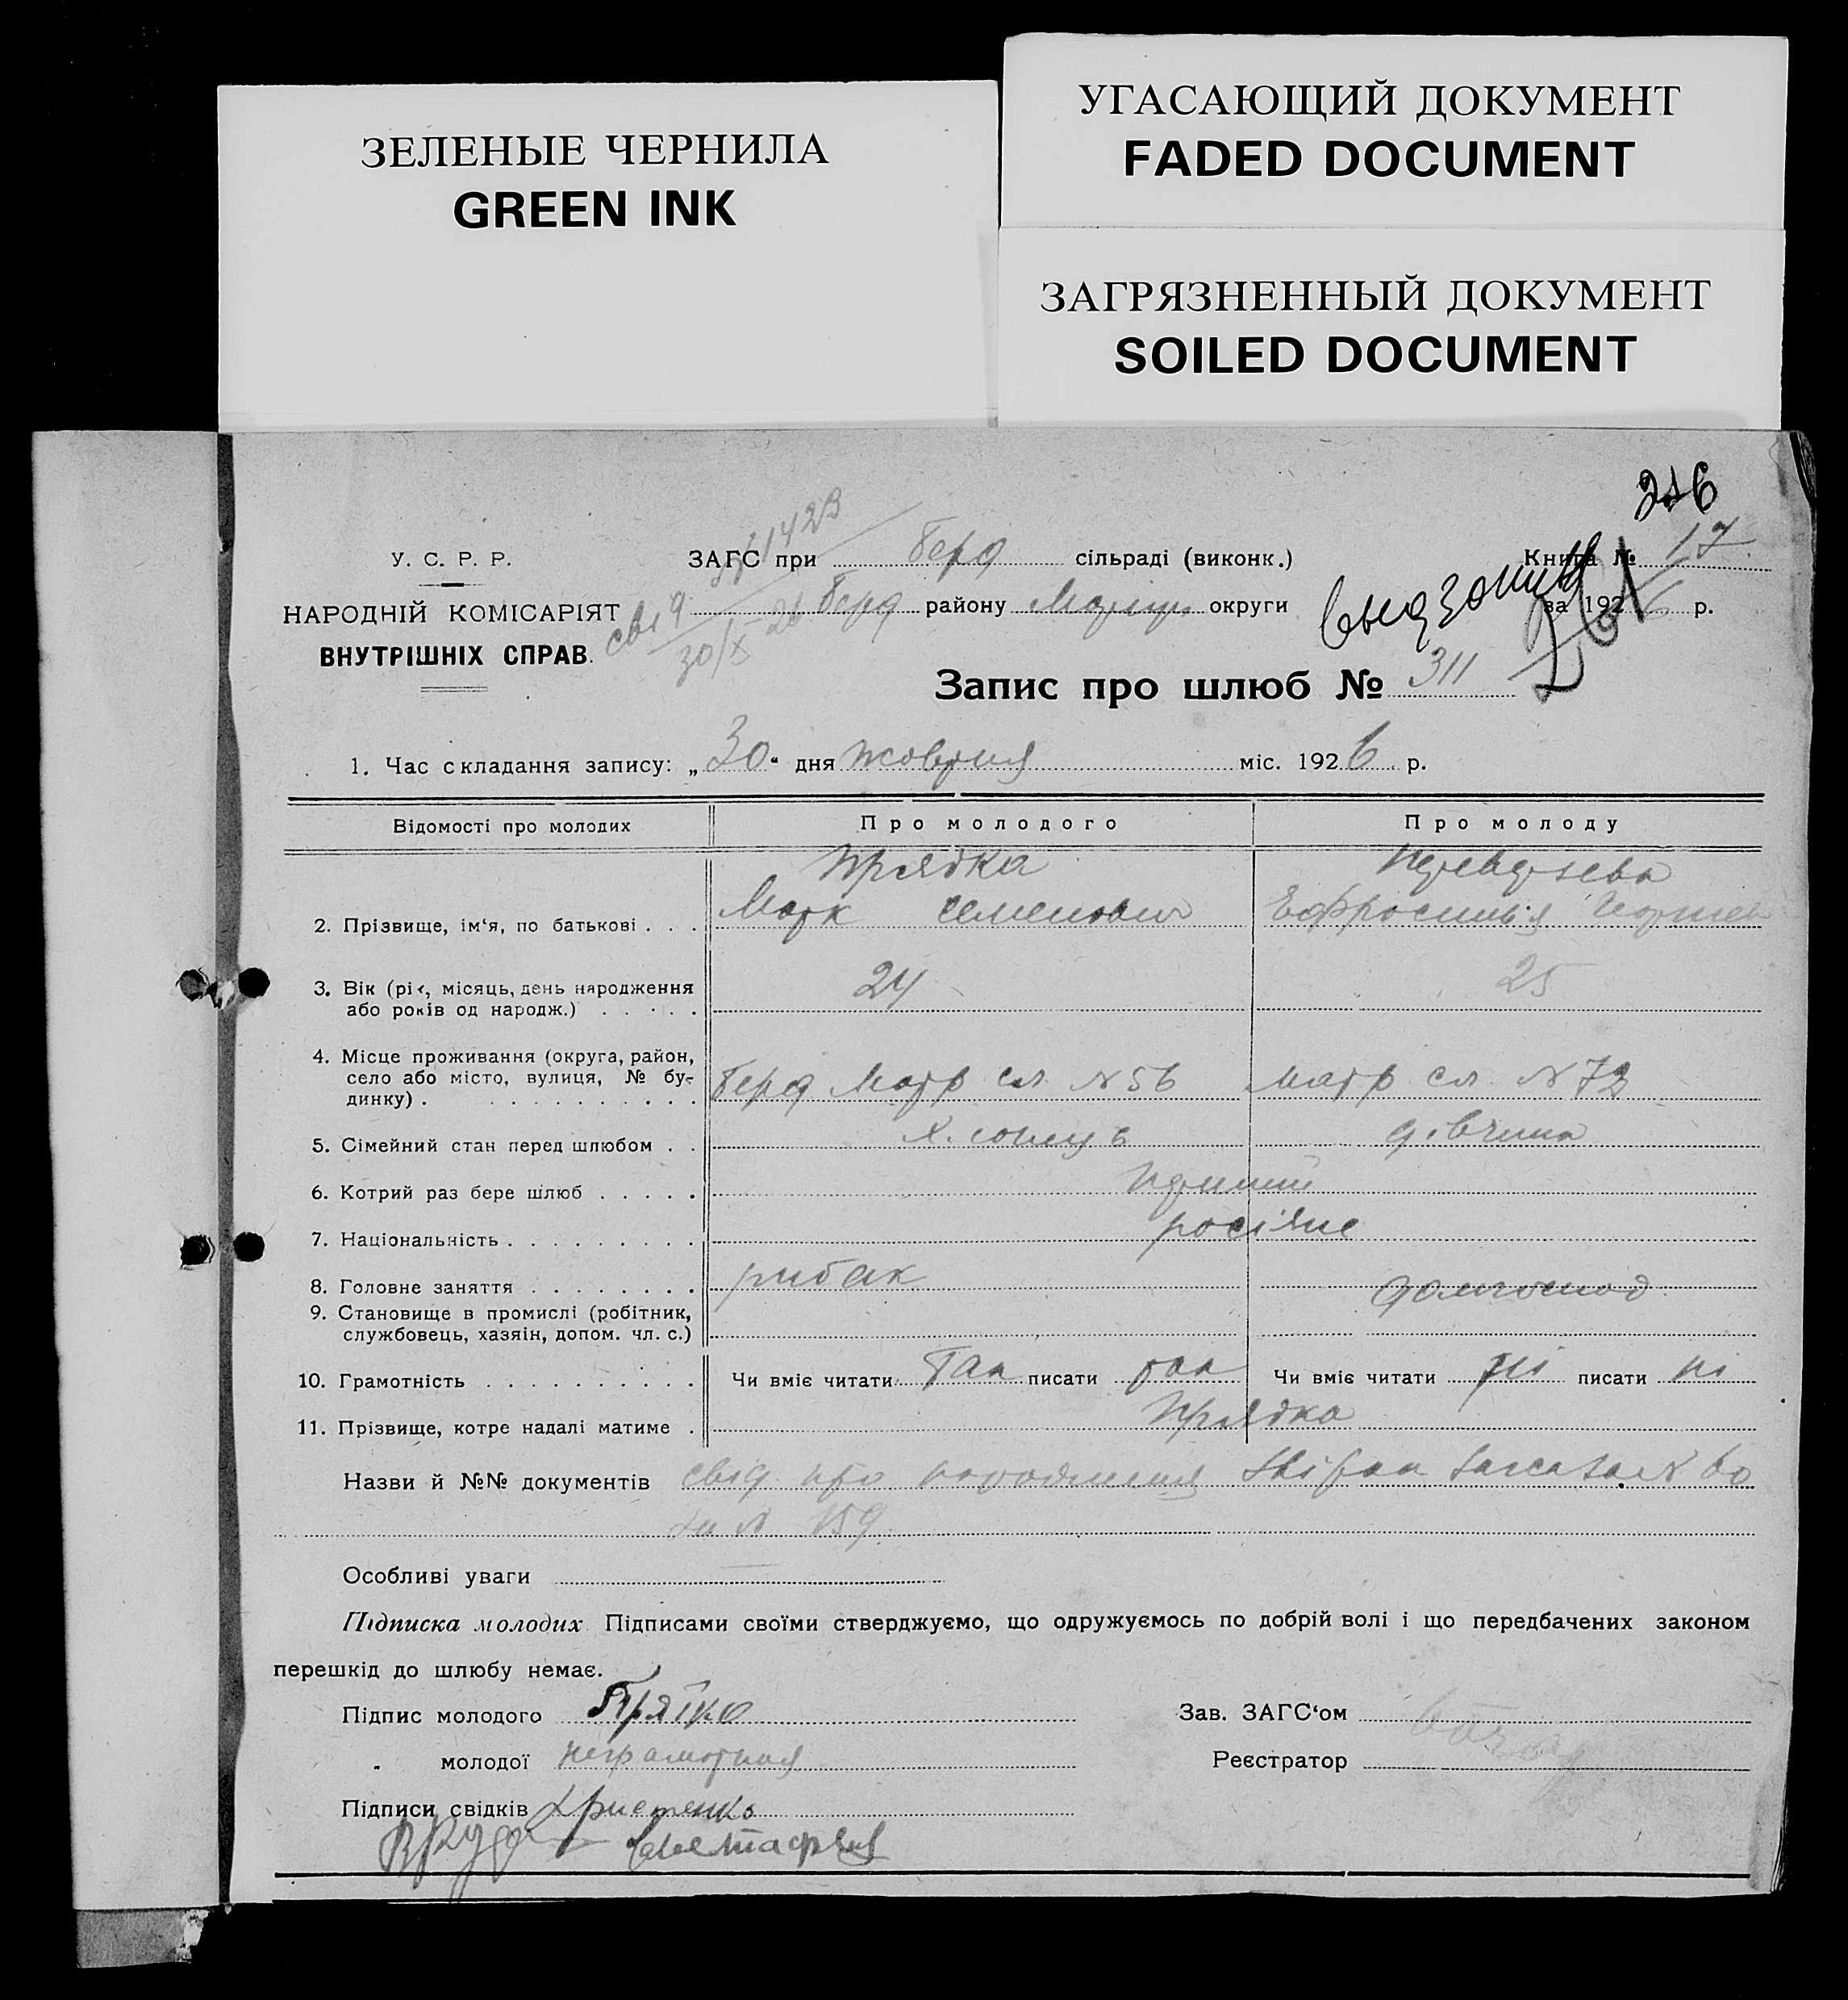 УГАСАЮЩИЙ ДОКУМЕНТ
FADED DOCUMENT
ЗЕЛЕНЫЕ ЧЕРНИЛА
GREEN INK
ЗАГРЯЗНЕННЫЙ ДОКУМЕНТ
SOILED DOCUMENT
У. С. Р. Р.
НАРОДНІЙ КОМІСАРІЯТ
ВНУТРІШНІХ СПРАВ.
ЗАГС при берд сільраді (виконк.)
Книга № 17
берд району округи
за 1926 р.
30/X 26
Запис про шлюб № 311
1. Час складання запису: „30" дня жовтня міс. 1926 р.
Відомості про молодих Про молодого Про молоду
Прядка
2. Прізвище, ім'я, по батькові . . . Марк Семенович Ефросинія
3. Вік (рік, місяць, день народження 24 25
або років од народж.) . . . . .
4. Місце проживання (округа, район,
село або місто, вулиця, № бу- берд Матр сл N 56 матр сл. N 73
динку) . . . . . . . . . . . .
5. Сімейний стан перед шлюбом . . дівчина
6. Котрий раз бере шлюб . . . . .
7. Національність . . . . . . . . . росіяне
8. Головне заняття . . . . . . . . рибак домгоспод
9. Становище в промислі (робітник,
службовець, хазяїн, допом. чл. с.)
10. Грамотність . . . . . . . . . . Чи вміє читати так писати так Чи вміє читати ні писати ні
11. Прізвище, котре надалі матиме . Прядка
Назви й №№ документів свід про народження
N 159
Особливі уваги
Підписка молодих Підписами своїми стверджуємо, що одружуємось по добрій волі і що передбачених законом
перешкід до шлюбу немає.
Підпис молодого Прятко Зав. ЗАГС'ом
„ молодої неграмотная Реєстратор
Підписи свідків Христенко